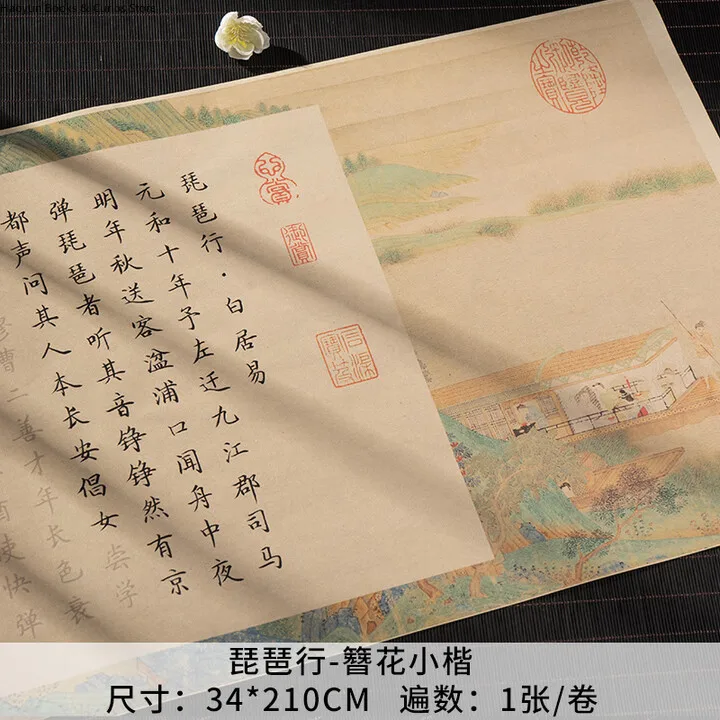 Books & Store
琵琶行·白居易
元和十年予左迁九江郡司马
明年秋送客湓浦口闻舟中夜
弹琵琶者听其音铮铮然有京
都声问其人本长安倡女尝学
曹二善才年长色衰
酒使快弹
御赏
琵琶行-簪花小楷
尺寸：34*210CM 遍数：1张/卷